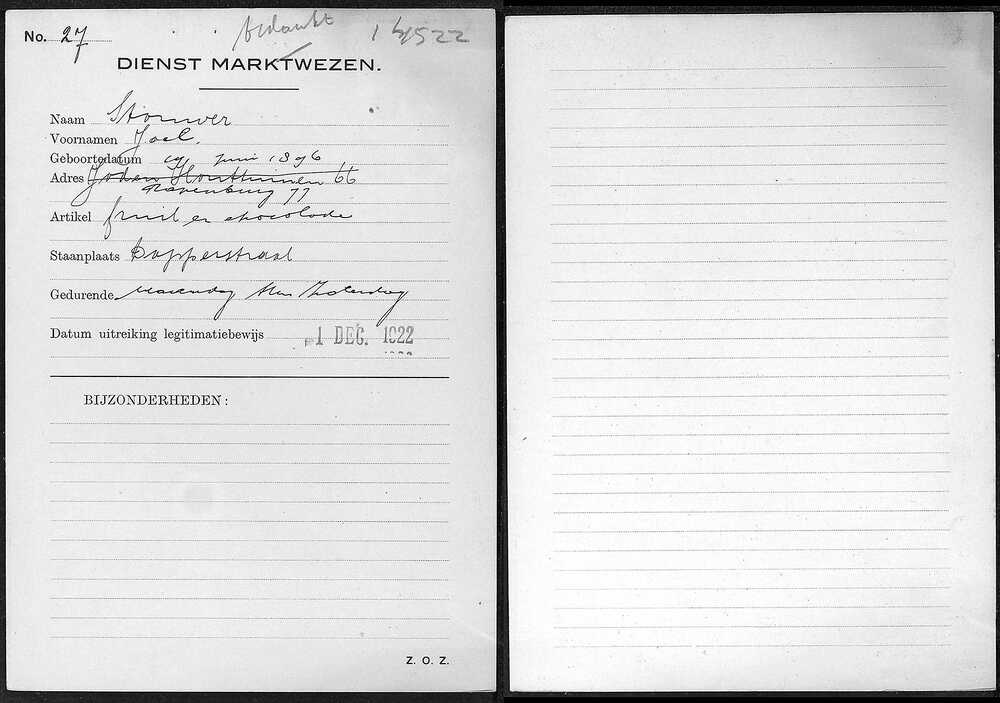 No. 27
bedankt
DIENST MARKTWEZEN.
Naam Stouwer
Voornamen Joel.
Geboortedatum 19 Juni 1896
Adres Joden Houttuinen 66
Rapenburg 77
Artikel fruit en chocolade
Staanplaats Dapperstraat
Gedurende Maandag t/m Zaterdag
Datum uitreiking legitimatiebewijs 1 DEC. 1922
BIJZONDERHEDEN:
Z. O. Z.